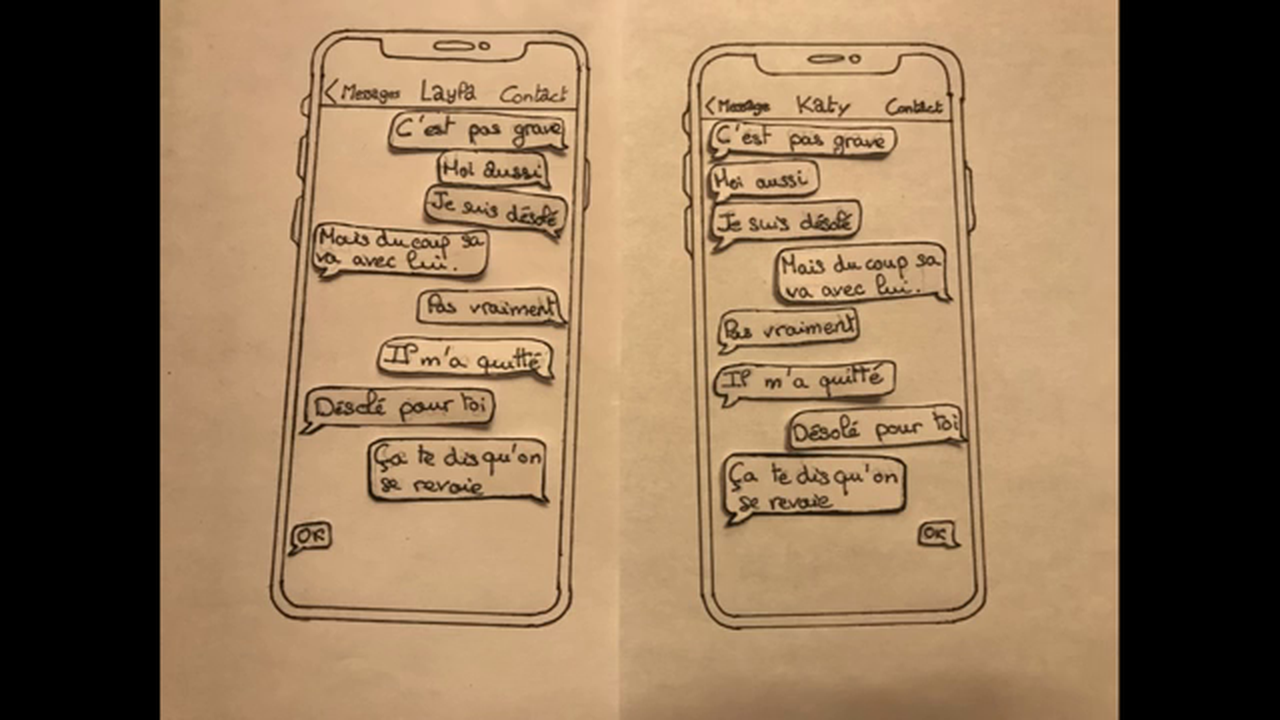 Messages Layla Contact
C'est pas grave
Moi aussi
Je suis désolé
Mais du coup sa
va avec lui.
Pas vraiment
Il m'a quitté
Désolé pour toi
Ça te dis qu'on
se revoie
OK
Message Katy Contact
C'est pas grave
Moi aussi
Je suis désolé
Mais du coup sa
va avec lui.
Pas vraiment
Il m'a quitté
Désolé pour toi
Ça te dis qu'on
se revoie
OK